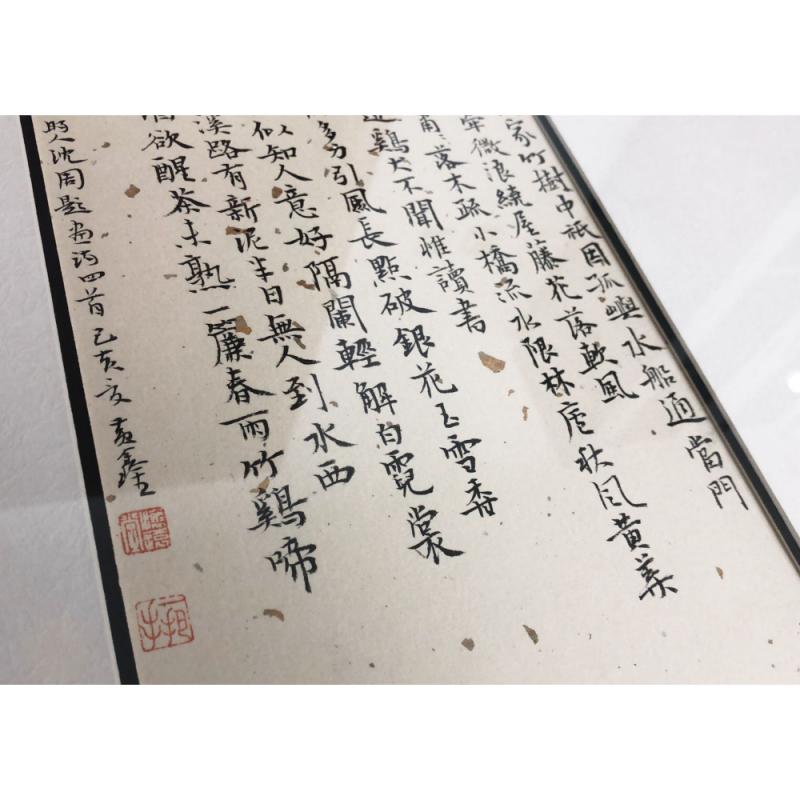 家竹樹中祇因孤嶼水船通當門
微浪繞屋藤花落軟風
落木疏小橋流水限林廬秋風黃葉
鷄犬不聞惟讀書
多力引風長點破銀花玉雪香
似知人意好隔闌輕解白霓裳
溪路有新泥半日無人到水西
欲醒茶未熟一簾春雨竹鷄啼
明人沈周題畫詩四首己亥夏